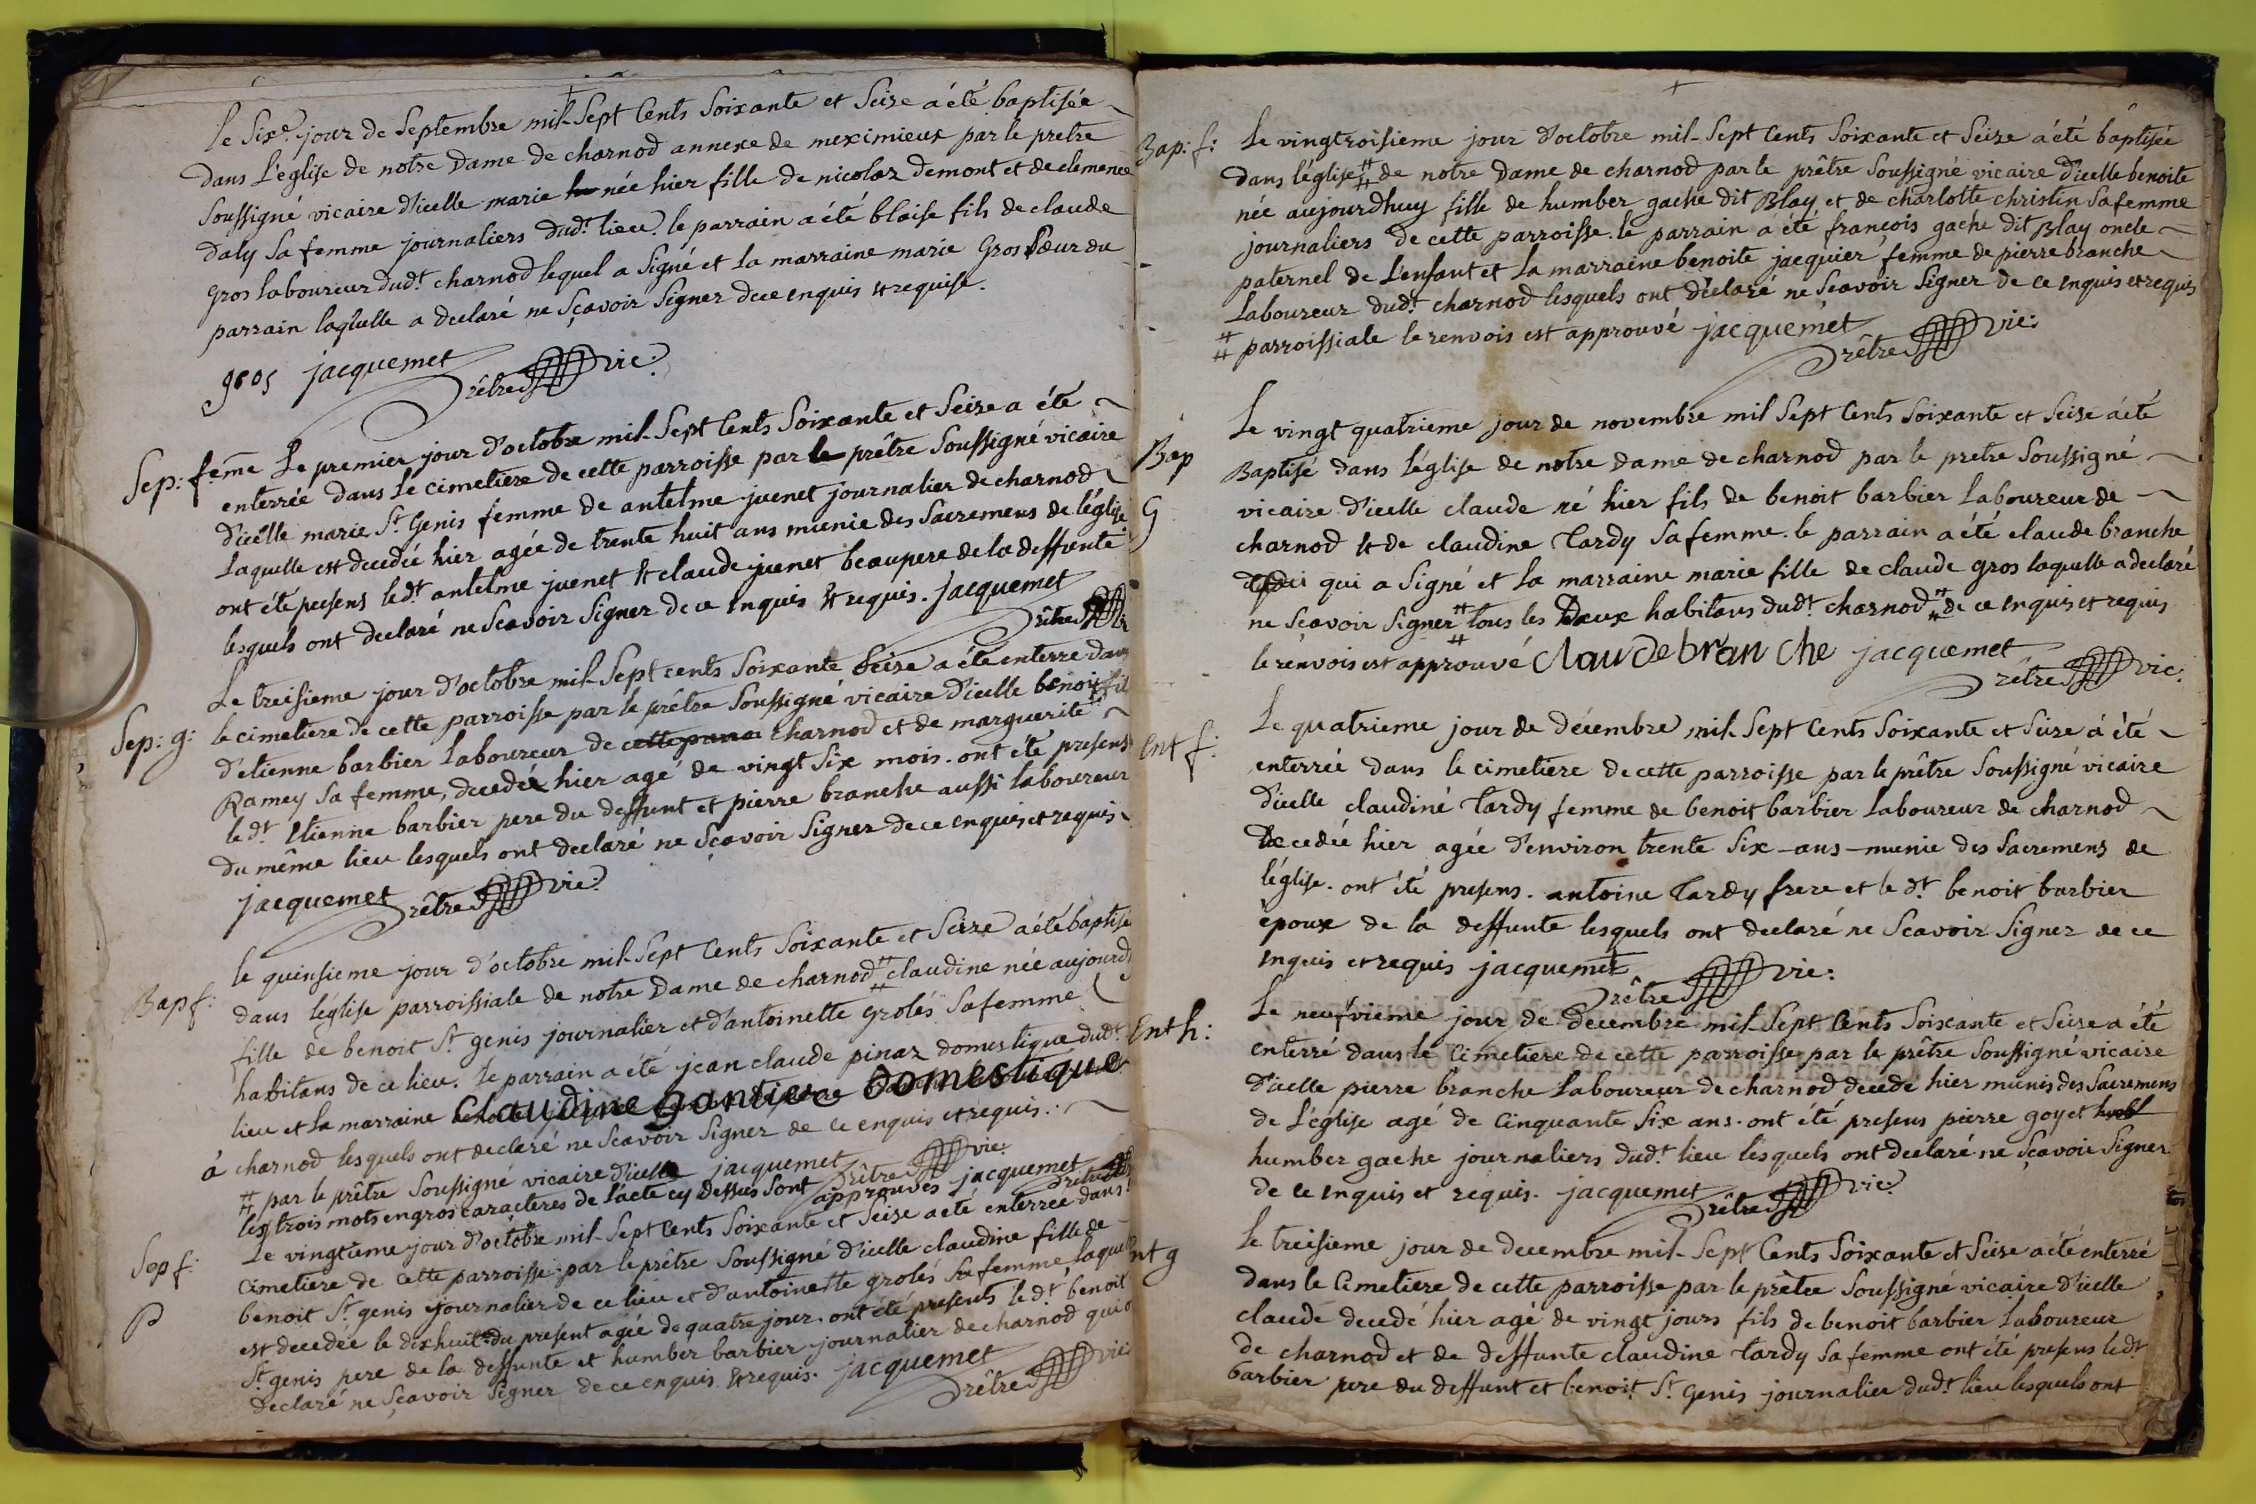 Le Sixe. jour de Septembre mil-Sept Cents Soixante et Seize a été baptisée
dans L'église de notre Dame de charnod annexe de meximieux par le pretre
Soussigné vicaire d'icelle marie née hier fille de nicolaz demont et de clemence
Daly Sa femme journaliers dudt. lieu. le parrain a été blaise fils de claude
Gros Laboureur dudt. charnod lequel a Signé et La marraine marie Gros Sœur du
parrain laquelle a declaré ne Sçavoir Signer de ce enquis et requise.
gros jacquemet
Prêtre vic:
Sep: feme Le premier jour d'octobre mil-Sept Cents Soixante et Seize a été
enterrée dans Le cimetiere de cette parroisse par le prêtre Soussigné vicaire
d'icelle marie St. Genis femme de antelme juenet journalier de charnod
Laquelle est decedée hier agée de trente huit ans munie des Sacremens de l'église
ont été presens ledt. antelme juenet et claude juenet beaupere de la deffunte
lesquels ont declaré ne Sçavoir Signer de ce enquis et requis. jacquemet
Prêtre
Sep: g: Le treisieme jour d'octobre mil-Sept cents Soixante Seize a été enterre dans
le cimetiere de cette parroisse par le prêtre Soussigné vicaire d'icelle benoit fil
d'etienne barbier Laboureur de cette paroi charnod et de marguerite
Ramey Sa femme, decedé hier agé de vingt Six mois. ont été presens
le dt. etienne barbier pere du deffunt et pierre branche aussi laboureur
du même lieu lesquels ont declaré ne Sçavoir Signer de ce enquis et requis
jacquemet Prêtre vic:
Bap f: le quinsieme jour d'octobre mil-Sept Cents Soixante et Seize a été baptise
dans l'église parroissiale de notre Dame de charnod # claudine née aujourd
fille de benoit St. genis journalier et d'antoinette grolés Sa femme
habitans de ce lieu. le parrain a été jean claude pinaz domestique dudt.
lieu et La marraine Claudine gantier domestique
à charnod lesquels ont declaré ne Sçavoir Signer de ce enquis et requis.
# par le prêtre Soussigné vicaire d'icelle jacquemet Prêtre vic:
les trois mots en gros caracteres de l'acte cy dessus Sont approuvés jacquemet Prêtre
Sep f: Le vingtieme jour d'octobre mil-Sept Cents Soixante et Seize a été enterrée dans
P cimetiere de cette parroisse par le prêtre Soussigné d'icelle claudine fille de
benoit St. genis journalier de ce lieu et d'antoinette grolés Sa femme laquel
est decedée le dixhuit du present agée de quatre jour. ont été presents le dt. benoit
St. genis pere de la deffunte et humber barbier journalier de charnod qui o
declaré ne Sçavoir Signer de ce enquis et requis. jacquemet
Prêtre vic:
Bap: f: Le vingtroisieme jour d'octobre mil-Sept Cents Soixante et Seize a été baptisée
dans l'église # de notre Dame de charnod par le prêtre Soussigné vicaire d'icelle benoite
née aujourdhuy fille de humber gache dit Blay et de charlotte christin Sa femme
journaliers de cette parroisse. le parrain a été françois gache dit Blay oncle
paternel de L'enfant et La marraine benoite jacquier femme de pierre branche
Laboureur dudt. charnod lesquels ont declaré ne Sçavoir Signer de ce enquis et requis
# parroissiale le renvois est approuvé jacquemet
Prêtre vic:
Bap Le vingt quatrieme jour de novembre mil Sept Cents Soixante et Seize a été
G Baptisé dans l'église de notre dame de charnod par le pretre Soussigné
vicaire d'icelle claude né hier fils de benoit barbier Laboureur de
charnod et de claudine Tardy Sa femme. le parrain a été claude branche
qui a Signé et La marraine marie fille de claude gros laquelle a declaré
ne Sçavoir Signer # tous les Deux habitans dudt. charnod # de ce enquis et requis
le renvois est approuvé Claude branche jacquemet
Prêtre vic:
Ent f: Le quatrieme jour de décembre mil-Sept Cents Soixante et Seize a été
enterrée dans le cimetiere de cette parroisse par le prêtre Soussigné vicaire
d'icelle claudine Tardy femme de benoit barbier Laboureur de charnod
Decedée hier agée d'environ trente Six-ans-munie des Sacremens de
l'église. ont été presens. antoine Tardy frere et le dt. benoit barbier
époux de la deffunte lesquels ont declaré ne Sçavoir Signer de ce
enquis et requis jacquemet Prêtre vic:
Ent h: Le neufvieme jour de decembre mil-Sept Cents Soixante et Seize a été
enterré dans le Cimetiere de cette parroisse par le prêtre Soussigné vicaire
d'icelle pierre branche Laboureur de charnod decedé hier munis des Sacremens
de L'église agé de Cinquante Six ans. ont été presens pierre goy et
humber gache journaliers dudt. lieu lesquels ont declaré ne Sçavoir Signer
de ce enquis et requis. jacquemet Prêtre vic:
nt g Le treisieme jour de decembre mil-Sept Cents Soixante et Seize a été enterré
dans le Cimetiere de cette parroisse par le prêtre Soussigné vicaire d'icelle
claude decedé hier agé de vingt jours fils de benoit barbier Laboureur
de charnod et de deffunte claudine Tardy Sa femme ont été presens le dt.
barbier pere du deffunt et benoit St. Genis journalier dudt. lieu lesquels ont